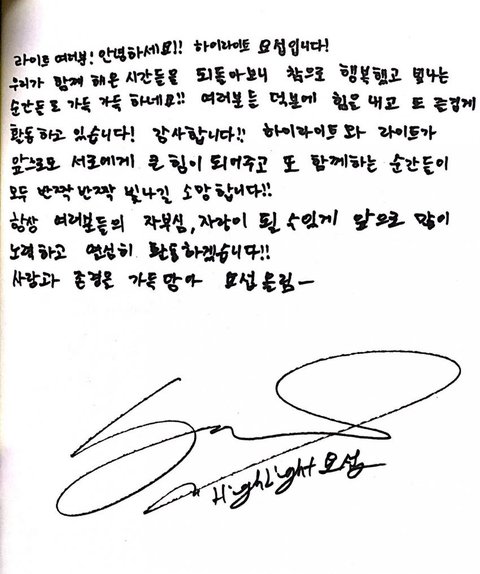 라이트 여러분! 안녕하세요!! 하이라이트 요섭입니다!
우리가 함께 해온 시간들을 되돌아보니 참으로 행복했고 빛나는
순간들로 가득 가득 하네요!! 여러분들 덕분에 힘을 내고 또 즐겁게
활동하고 있습니다! 감사합니다!! 하이라이트와 라이트가
앞으로도 서로에게 큰 힘이 되어주고 또 함께하는 순간들이
모두 반짝 반짝 빛나길 소망합니다!!
항상 여러분들의 자부심, 자랑이 될 수있게 앞으로 많이
노력하고 열심히 활동하겠습니다!!
사랑과 존경을 가득 담아 요섭 올림ㅡ
HighLight 요섭